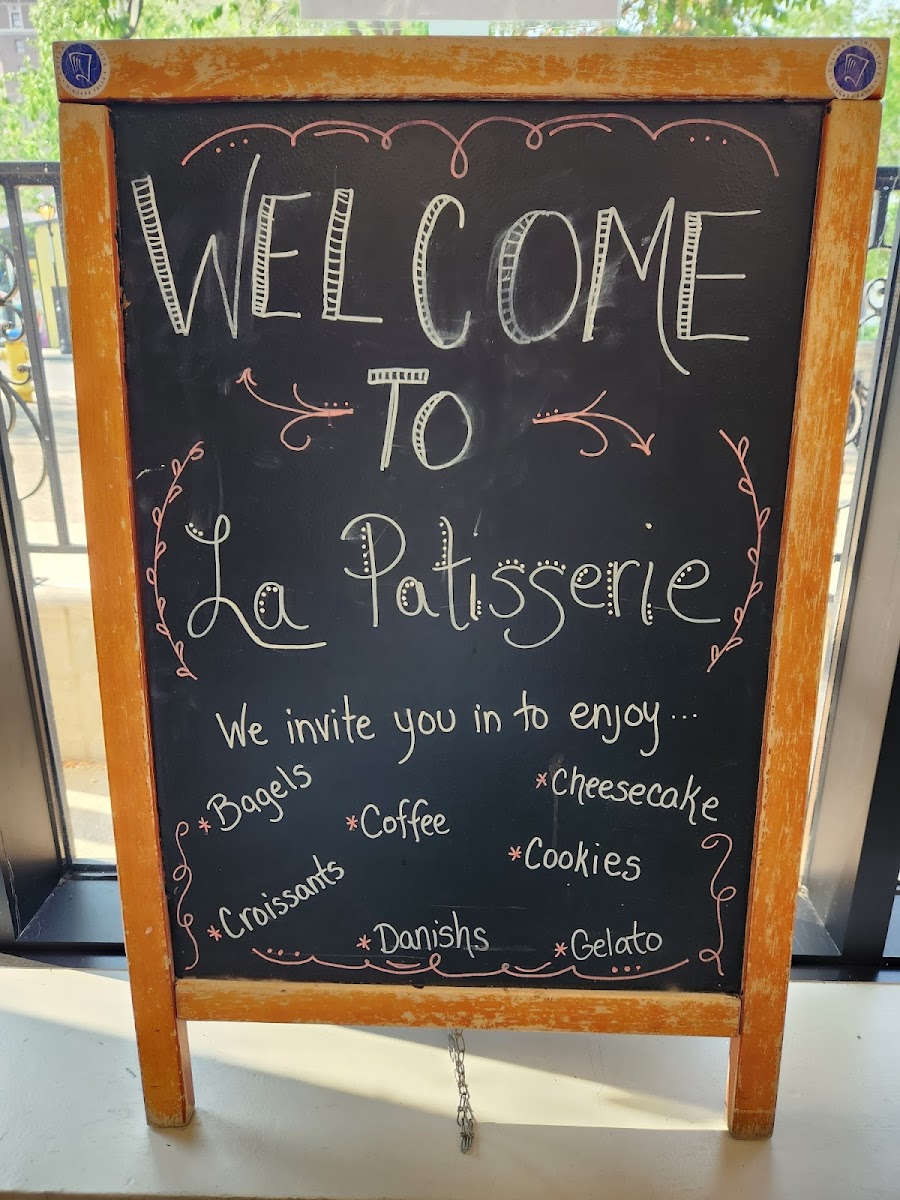 WELCOME
TO
La Patisserie
We invite you in to enjoy...
*Bagels
*Cheesecake
*Coffee
*Cookies
*Croissants
*Danishs
*Gelato